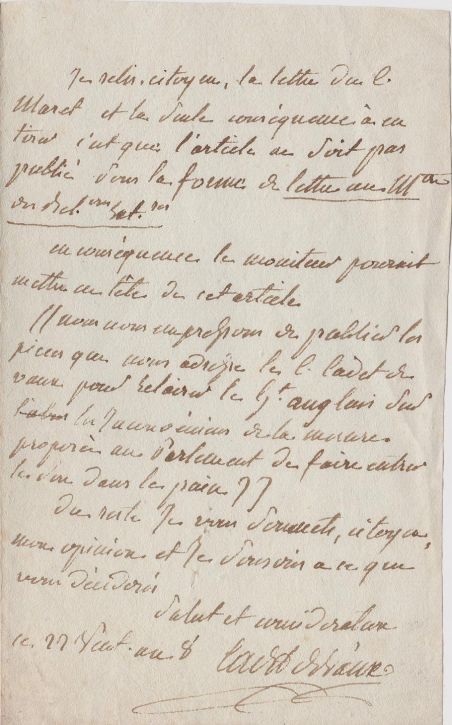 Je relis, citoyen, la lettre du C.
Maret et la seule conséquence à en
tirer c'est que l'article ne soit pas
publié sous la forme de lettre au Mtre
des Rel. ons Ext. res
en conséquence le moniteur pourroit
mettre en tête de cet article
((nous nous empressons de publier les
pieces que nous adresse le C. Cadet de
vaux pour éclairer le Gt. anglais sur
les inconvéniens de la mesure
proposée au Parlement de faire entrer
le son dans le pain))
Du reste Je vous soumets, citoyen,
mon opinion et Je souscris a ce que
vous déciderés
Salut et considération
ce 22 Vent. an 8 Cadet devaux